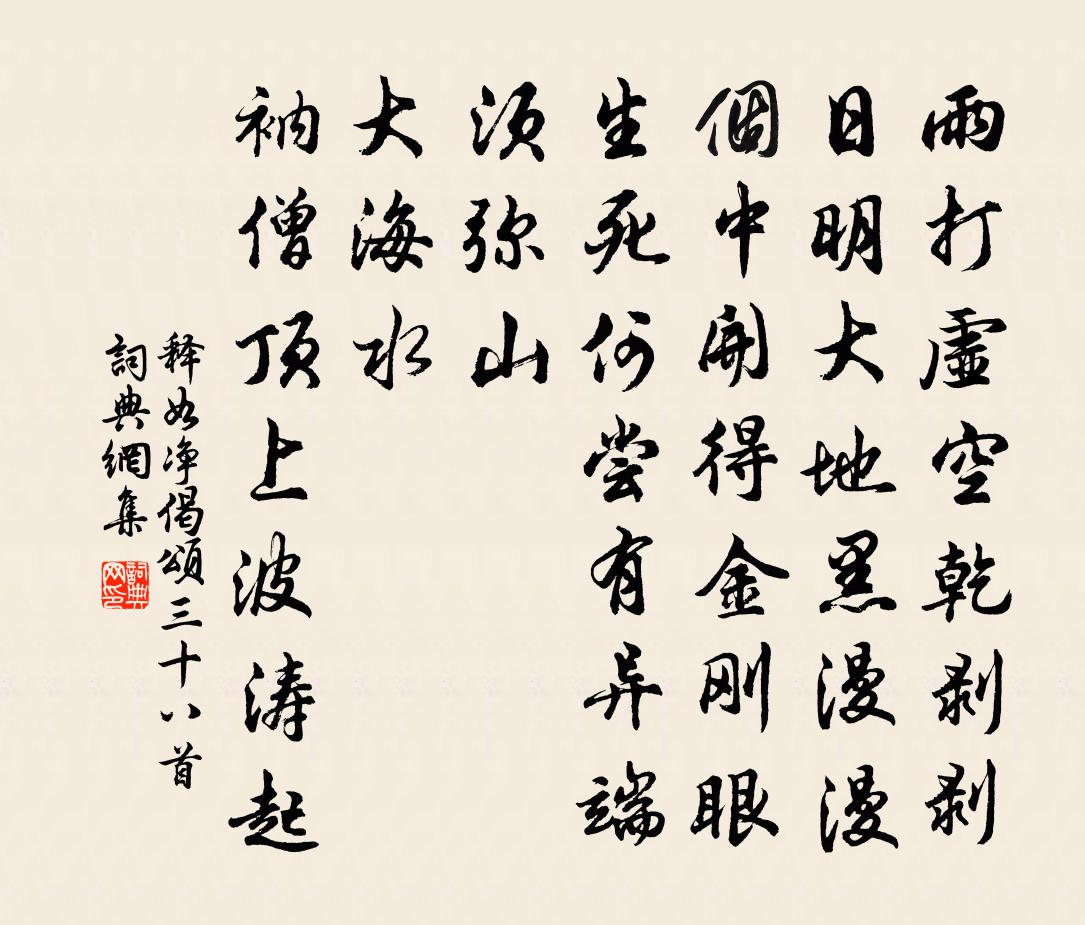 雨打虛空乾剥剥
日明大地黑漫漫
個中開得金刚眼
生死何尝有异端
须弥山
大海水
衲僧顶上波涛起
释如净偈頌三十八首
詞典網集
詞典网印